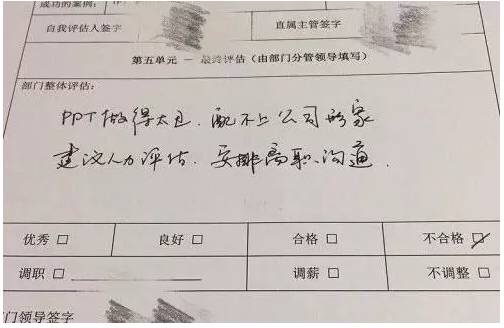 成功的案例：
自我评估人签字 直属主管签字
第五单元 — 最终评估（由部门分管领导填写）
部门整体评估：
PPT做得太丑．配不上公司形象
建议人力评估．安排离职沟通．
优秀 □ 良好 □ 合格 □ 不合格 ☑
调职 □ 调薪 □ 不调整 □
门领导签字